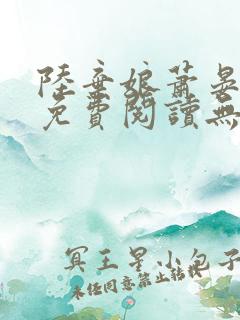 陸棄娘蕭晏
免費閱讀無
冥王星小包子
未經同意禁止轉載